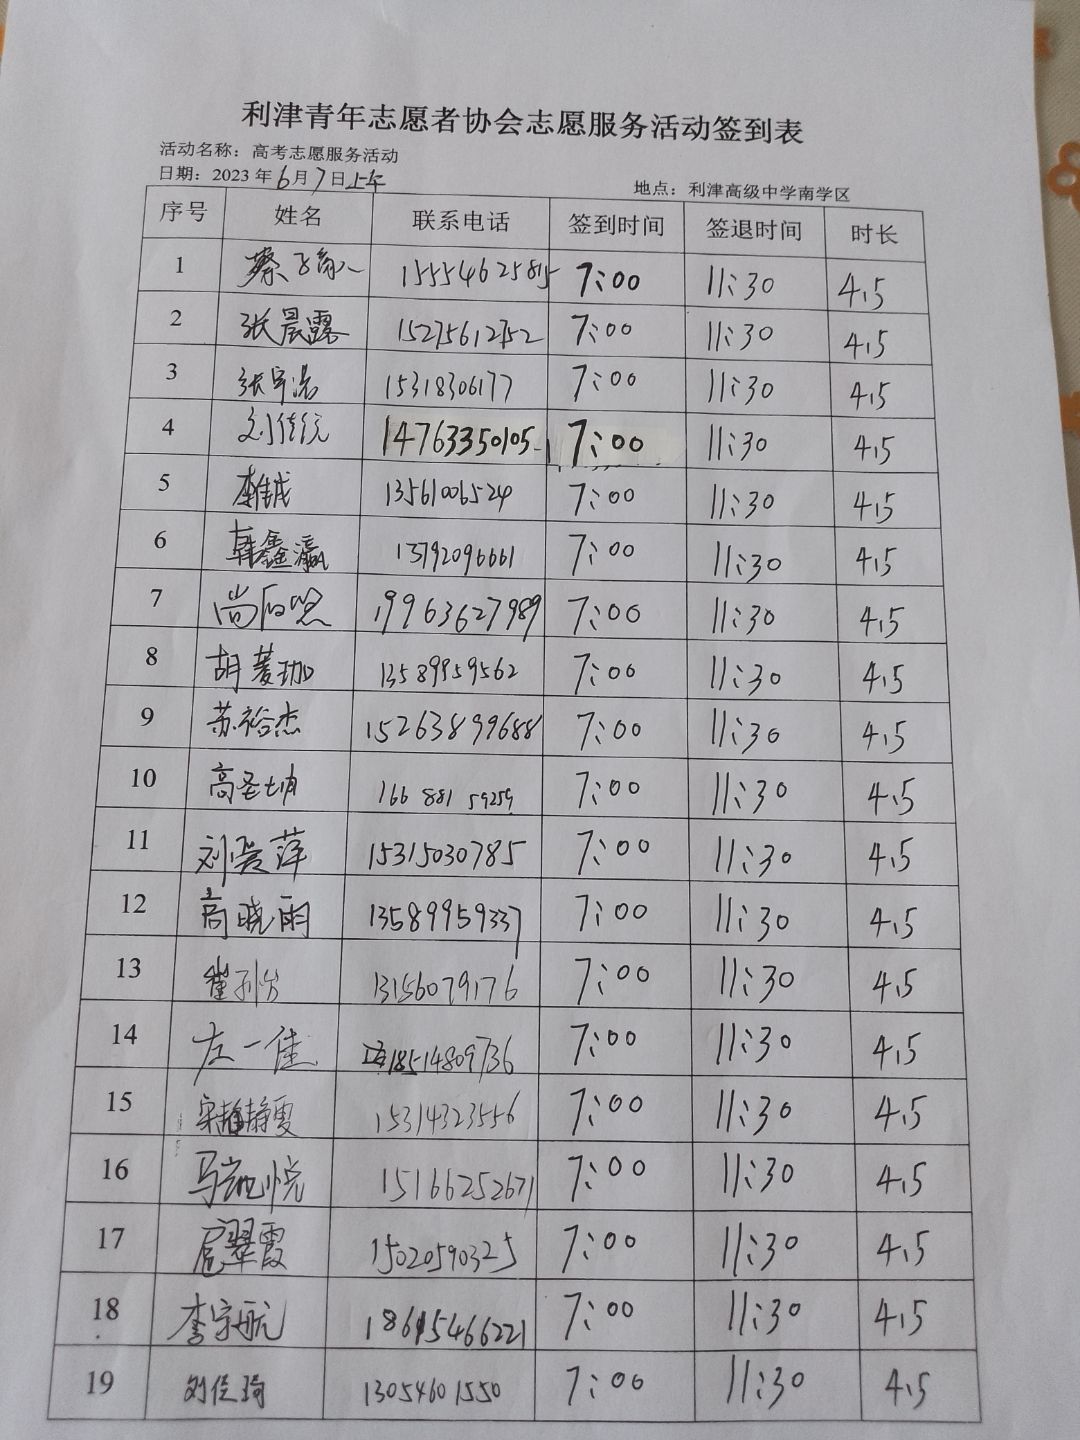 利津青年志愿者协会志愿服务活动签到表
活动名称：高考志愿服务活动
日期：2023年6月7日上午
地点：利津高级中学南学区
序号 姓名 联系电话 签到时间 签退时间 时长
1 蔡 15554625815 7:00 11:30 4.5
2 张晨露 15275612752 7:00 11:30 4.5
3 张宇浩 15318306177 7:00 11:30 4.5
4 刘 14763350105 7:00 11:30 4.5
5 李 13561006524 7:00 11:30 4.5
6 韩鑫瀛 13792096661 7:00 11:30 4.5
7 尚 19963627989 7:00 11:30 4.5
8 胡 13589959562 7:00 11:30 4.5
9 苏裕杰 15263899688 7:00 11:30 4.5
10 高圣 166 881 59259 7:00 11:30 4.5
11 刘爱萍 15315030785 7:00 11:30 4.5
12 高晓雨 13589959337 7:00 11:30 4.5
13 崔 13156079176 7:00 11:30 4.5
14 左一佳 18514809736 7:00 11:30 4.5
15 宋静雯 15314323556 7:00 11:30 4.5
16 马悦 15166252671 7:00 11:30 4.5
17 扈翠霞 15020590325 7:00 11:30 4.5
18 李宗航 18615466221 7:00 11:30 4.5
19 刘佳琦 13054601550 7:00 11:30 4.5